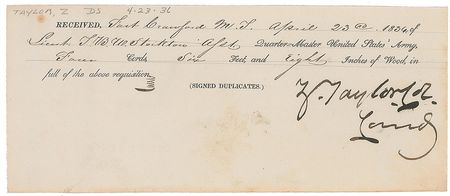 TAYLOR, Z DS 4-23-36
RECEIVED, Fort Crawford M.T. April 23rd. 1836 of
Lieut T.B.W. Stockton Asst Quarter-Master United States' Army,
Four Cords, Six Feet, and eight Inches of Wood, in
full of the above requisition.
(SIGNED DUPLICATES.)
Z. Taylor Col.
Comdg